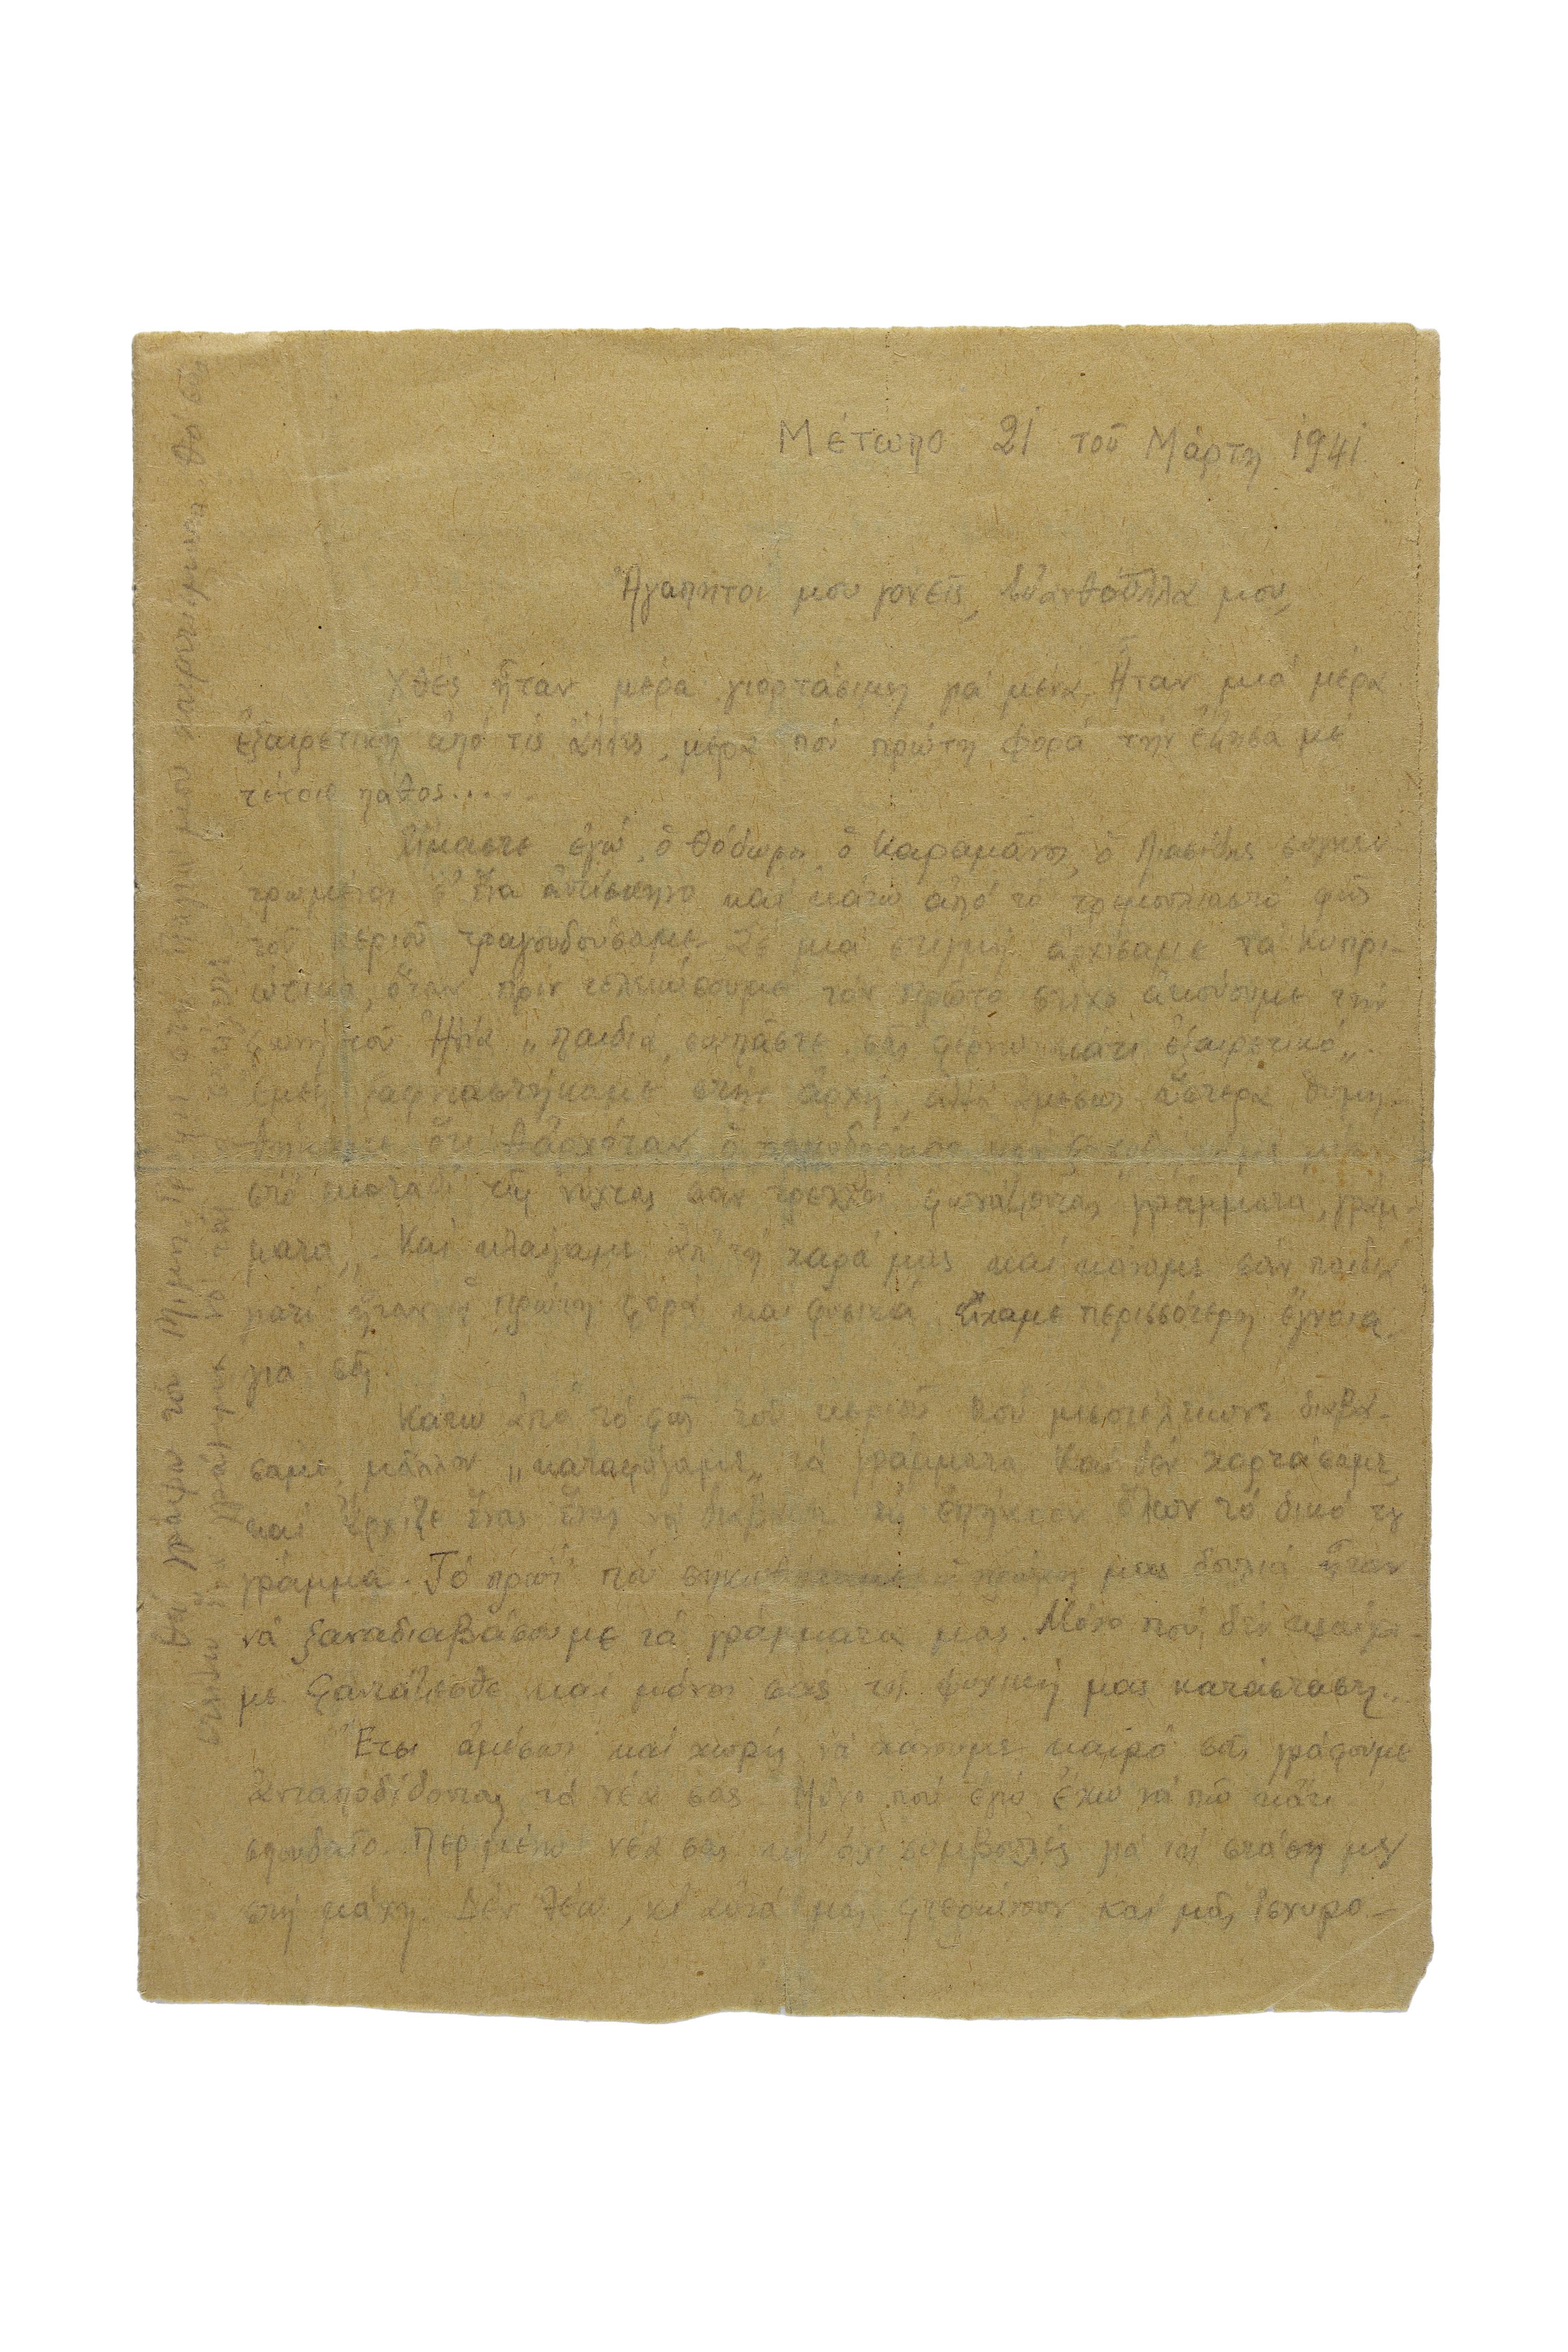 Μέτωπο 21 τοῦ Μάρτη 1941
Ἀγαπητοί μου γονεῖς, Εὐανθοῦλλα μου,
Χθὲς ἦταν μέρα γιορτάσιμη γιὰ μένα. Ἦταν μιὰ μέρα
ἐξαιρετικὴ ἀπὸ τὶς ἄλλες, μέρα ποὺ πρώτη φορὰ τὴν ἔζησα μὲ
τέτοιο πάθος.....
Εἴμαστε ἐγώ, ὁ Θόδωρος, ὁ Καραμάνος, ὁ Λιασίδης συγκεν
τρωμένοι σ' ἕνα ἀντίσκηνο καὶ κάτω ἀπὸ τὸ φῶς
τοῦ κεριοῦ τραγουδούσαμε. Σὲ μιὰ στιγμὴ ἀρχίσαμε τὰ Κυπρι-
ώτικα, ὅταν πρὶν τελειώσουμε τὸν πρῶτο στίχο ἀκούουμε τὴν
φωνὴ τοῦ Ἠλία „παιδιά, σωπᾶστε, σᾶς φέρνω κάτι ἐξαιρετικό„.
Ἐμεῖς ξαφνιαστήκαμε στὴν ἀρχή, ἀλλὰ ἀμέσως ὕστερα θυμη-
θήκαμε ὅτι θἀρχόταν ὁ
στὸ σκοτάδι τῆς νύχτας σὰν τρελλοὶ φωνάζοντας γράμματα, γράμ-
ματα„. Καὶ κλαίγαμε ἀπ' τὴ χαρά μας καὶ κάναμε σὰν παιδιὰ
γιατὶ ἦταν ἡ πρώτη φορὰ καὶ φυσικὰ εἴχαμε περισσότερη ἔγνοια
γιὰ σᾶς.
Κάτω ἀπὸ τὸ φῶς τοῦ κεριοῦ ποὺ διαβά-
σαμε, μᾶλλον „καταφάγαμε„ τὰ γράμματα. Καὶ δὲν χορτάσαμε,
καὶ ἄρχιζε ἕνας ἕνας νὰ διαβάζη εἰς ἐπήκοον ὅλων τὸ δικό τυ
γράμμα. Τὸ πρωῒ ποὺ μας δουλιὰ ἦταν
νὰ ξαναδιαβάσουμε τὰ γράμματά μας. Μόνο ποὺ δὲν κλαίγα-
με. Φαντάζεσθε καὶ μόνοι σας τὴ ψυχική μας κατάσταση..
Ἔτσι ἀμέσως καὶ χωρὶς νὰ χάνουμε καιρὸ σᾶς γράφουμε
ἀνταποδίδοντας τὰ νέα σας. Μόνο ποὺ ἐγὼ ἔχω νὰ πῶ κάτι
σπουδαῖο. Περιμένω νέα σας κι' ὄχι συμβουλὲς γιὰ τὴ στάση μου
στὴ μάχη. Δὲν θέλω, κι αὐτὰ μᾶς φτερώνουν καὶ μᾶς ἰσχυρο-
Θὰ γράψω τοῦ